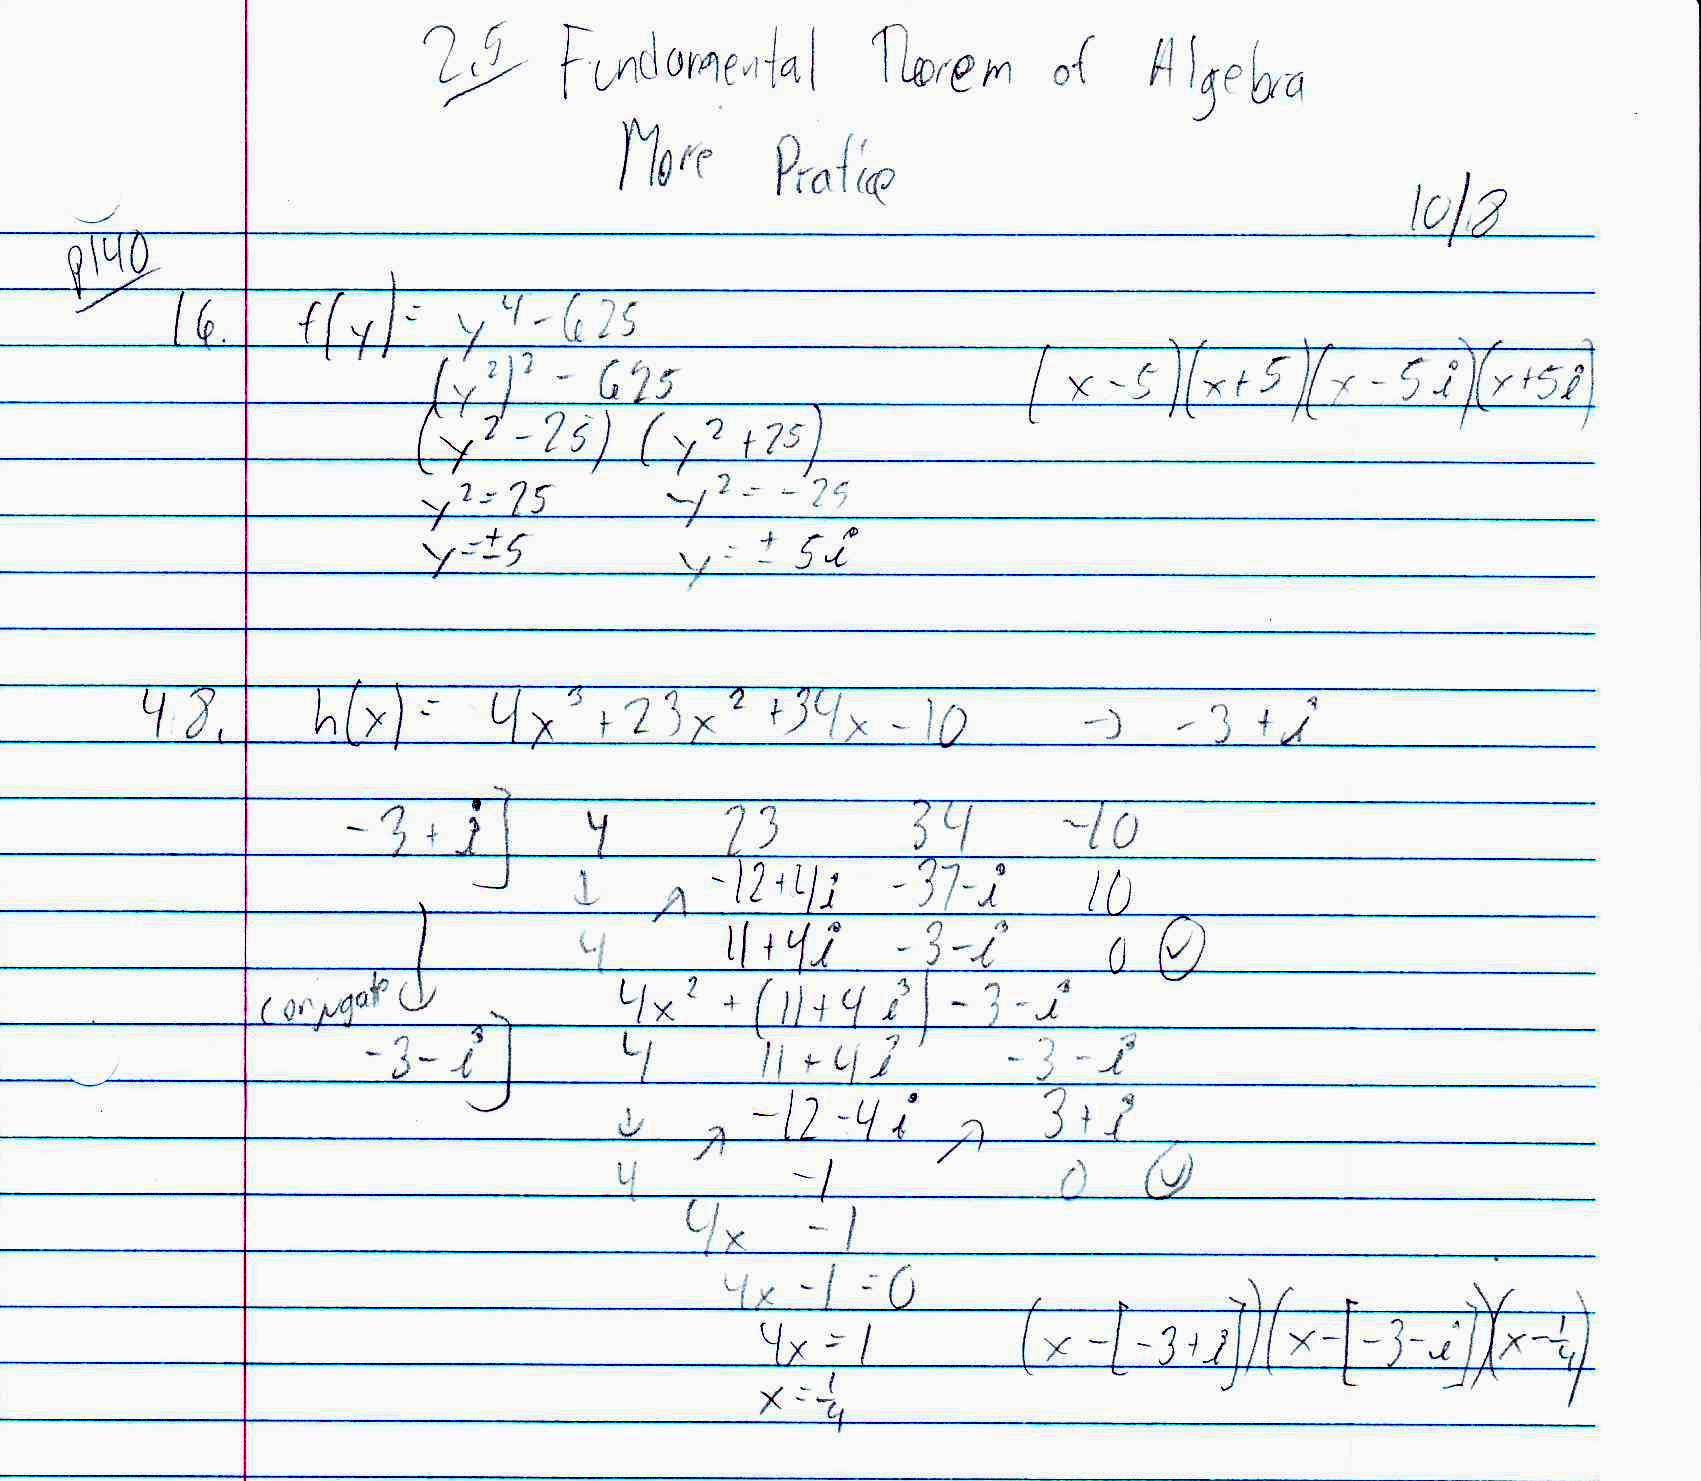 2.5 Fundamental Theorem of Algebra
More Pratice
10/8
p140
16. f(y) = y⁴ - 625
(y²)² - 625 (x - 5)(x + 5)(x - 5i)(x + 5i)
(y² - 25) (y² + 25)
y² = 25 y² = -25
y = ±5 y = ± 5i
48. h(x) = 4x³ + 23x² + 34x - 10 → -3 + i
-3 + i] 4 23 34 -10
↓ ↗ -12+4i -37-i 10
4 11+4i -3-i 0 ✓
conjugate 4x² + (11+4i) - 3 - i
-3 - i] 4 11+4i -3-i
↓ ↗ -12-4i ↗ 3+i
4 -1 0 ✓
4x - 1
4x - 1 = 0
4x = 1 (x - [-3+i])(x - [-3-i])(x - 1/4)
x = 1/4